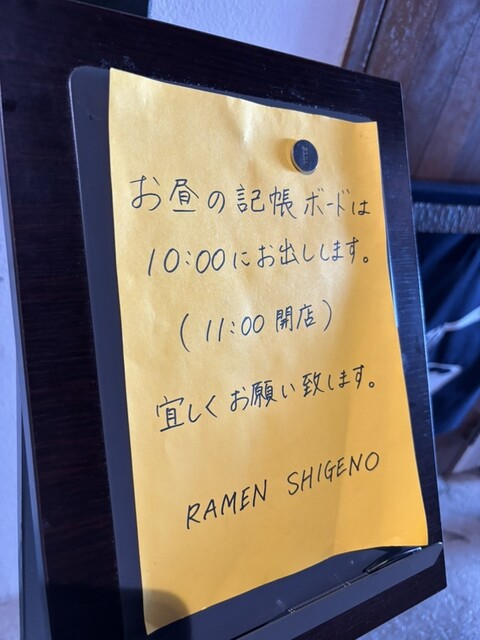 お昼の記帳ボードは
10:00にお出しします。
(11:00 開店)
宜しくお願い致します。
RAMEN SHIGENO